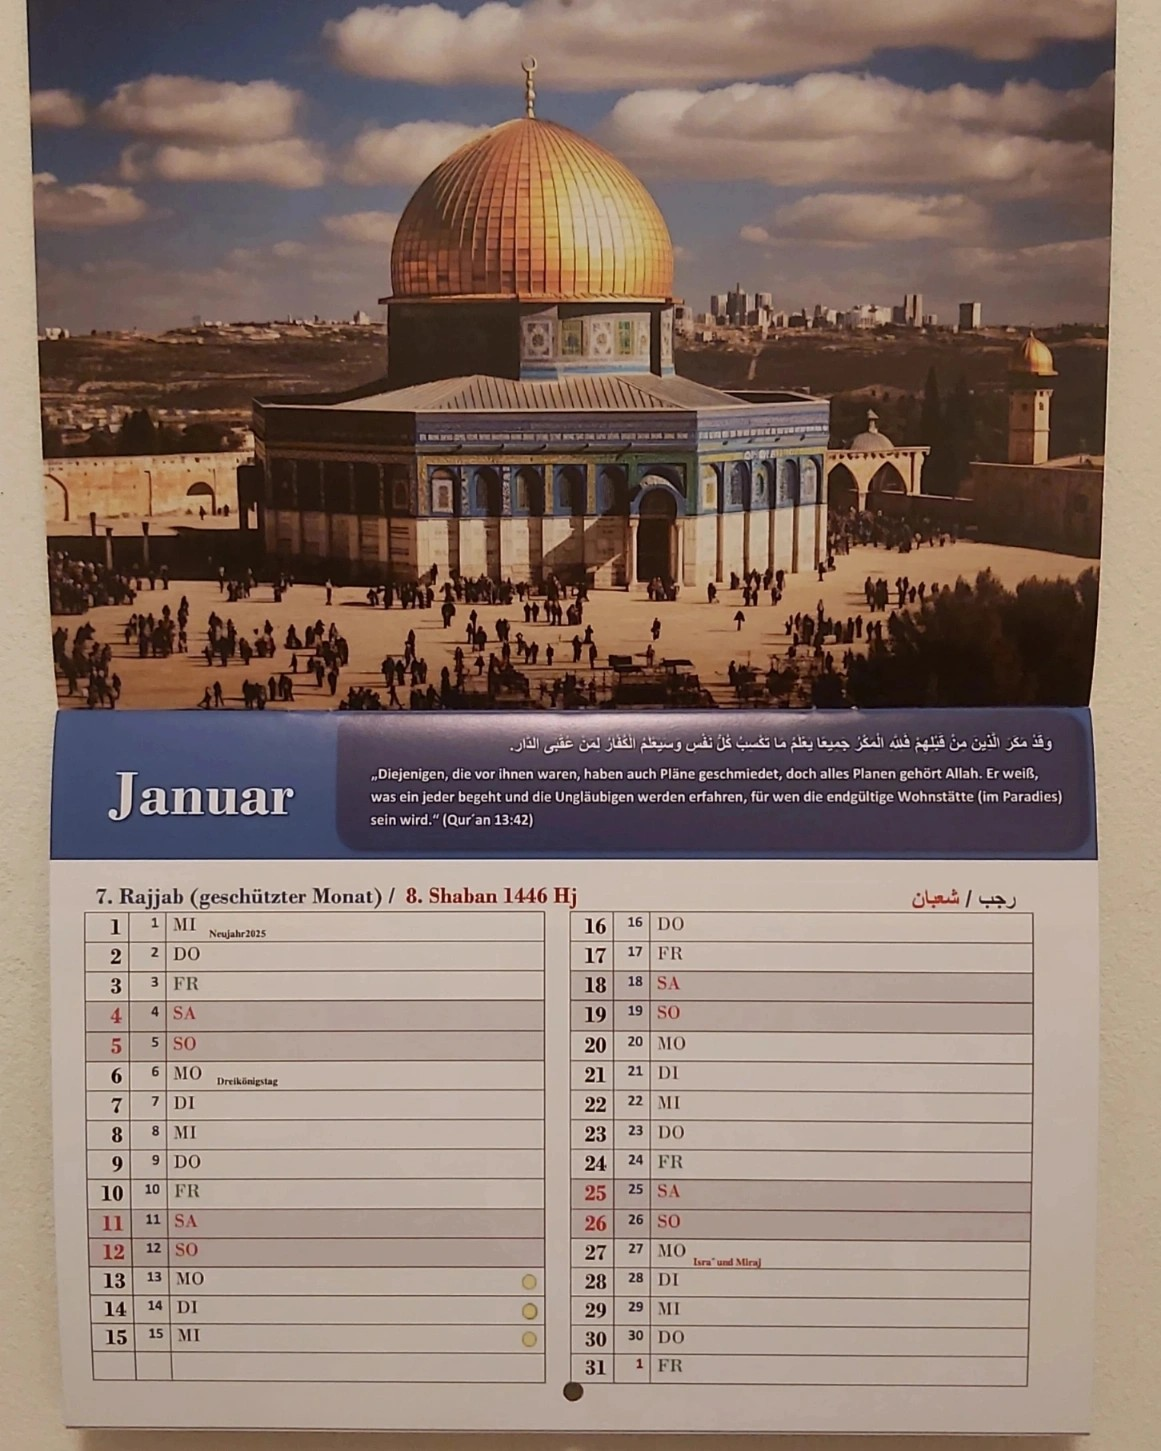 وَقَدْ مَكَرَ الَّذِينَ مِنْ قَبْلِهِمْ فَلِلَّهِ الْمَكْرُ جَمِيعًا يَعْلَمُ مَا تَكْسِبُ كُلُّ نَفْسٍ وَسَيَعْلَمُ الْكُفَّارُ لِمَنْ عُقْبَى الدَّارِ.
„Diejenigen, die vor ihnen waren, haben auch Pläne geschmiedet, doch alles Planen gehört Allah. Er weiß,
was ein jeder begeht und die Ungläubigen werden erfahren, für wen die endgültige Wohnstätte (im Paradies)
sein wird.“ (Qur´an 13:42)
Januar
7. Rajjab (geschützter Monat) / 8. Shaban 1446 Hj
رجب / شعبان
1 1 MI Neujahr2025
2 2 DO
3 3 FR
4 4 SA
5 5 SO
6 6 MO Dreikönigstag
7 7 DI
8 8 MI
9 9 DO
10 10 FR
11 11 SA
12 12 SO
13 13 MO
14 14 DI
15 15 MI
16 16 DO
17 17 FR
18 18 SA
19 19 SO
20 20 MO
21 21 DI
22 22 MI
23 23 DO
24 24 FR
25 25 SA
26 26 SO
27 27 MO Isra¨ und Miraj
28 28 DI
29 29 MI
30 30 DO
31 1 FR